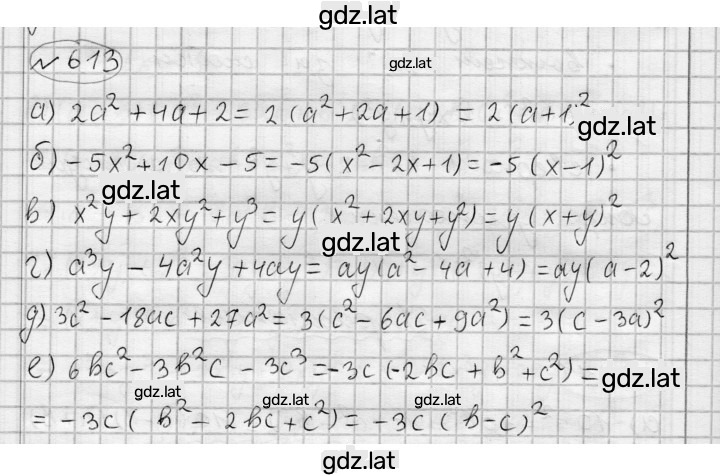 gdz.lat
№ 613
gdz.lat
а) 2a² + 4a + 2 = 2 (a² + 2a + 1) = 2 (a + 1)²
gdz.lat
б) - 5x² + 10x - 5 = -5 (x² - 2x + 1) = -5 (x - 1)²
gdz.lat
в) x²y + 2xy² + y³ = y (x² + 2xy + y²) = y (x + y)²
gdz.lat
г) a³y - 4a²y + 4ay = ay (a² - 4a + 4) = ay (a - 2)²
д) 3c² - 18ac + 27a² = 3 (c² - 6ac + 9a²) = 3 (c - 3a)²
е) 6bc² - 3b²c - 3c³ = -3c (-2bc + b² + c²) =
gdz.lat
gdz.lat gdz.lat gdz.lat
= -3c (b² - 2bc + c²) = -3c (b - c)²
gdz.lat